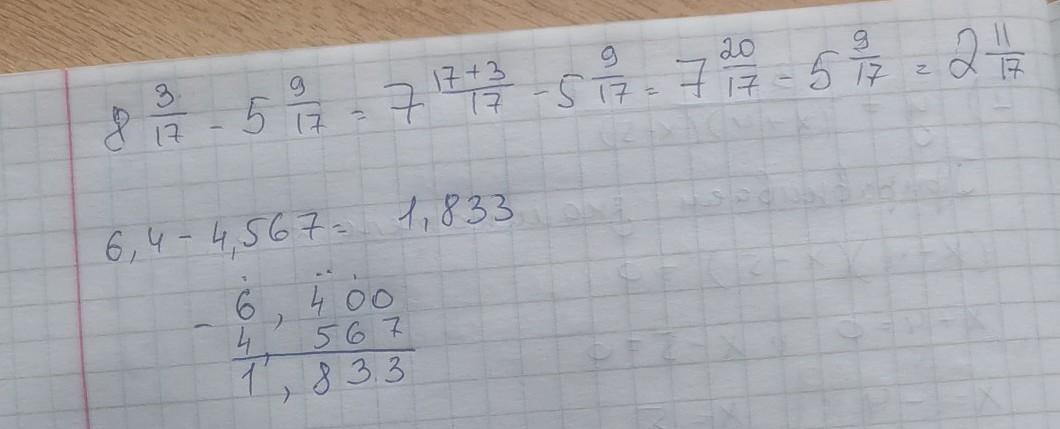 8 3/17 - 5 9/17 = 7 17+3/17 - 5 9/17 = 7 20/17 - 5 9/17 = 2 11/17
6,4 - 4,567 = 1,833
- 6,400
4,567
1,833